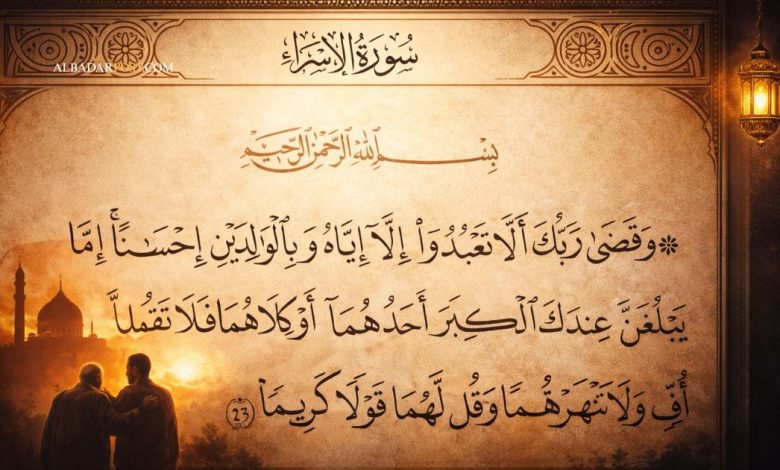 سُورَةُ الإِسْرَاءِ
ALBADARPOST.COM
بِسْمِ اللهِ الرَّحْمٰنِ الرَّحِيْمِ
❊ وَقَضَىٰ رَبُّكَ أَلَّا تَعْبُدُوٓا۟ إِلَّآ إِيَّاهُ وَبِٱلْوَٰلِدَيْنِ إِحْسَـٰنًاۚ إِمَّا
يَبْلُغَنَّ عِندَكَ ٱلْكِبَرَ أَحَدُهُمَآ أَوْ كِلَاهُمَا فَلَا تَقُل
أُفٍّ وَلَا تَنْهَرْهُمَا وَقُل لَّهُمَا قَوْلًا كَرِيمًا 23